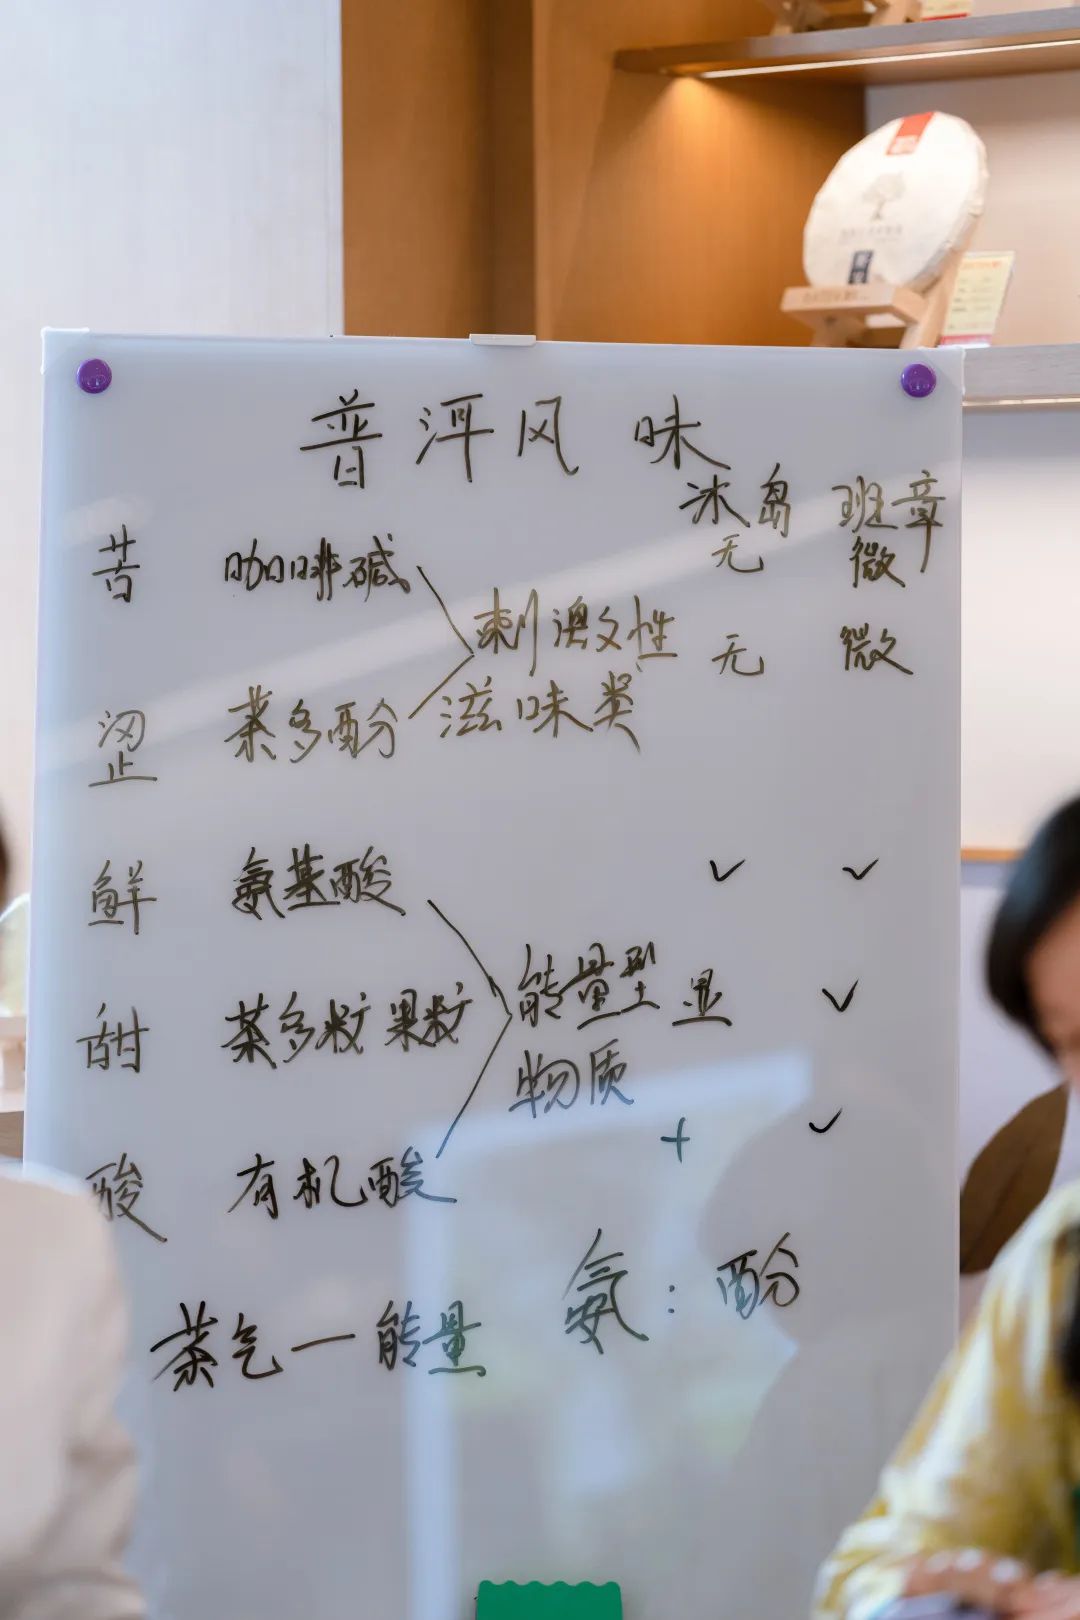 普洱风味
冰岛 班章
苦 咖啡碱 无 微
刺激性
涩 茶多酚 滋味类 无 微
鲜 氨基酸 ✓ ✓
甜 茶多糖 果糖 能量型 显 ✓
物质
酸 有机酸 + ✓
茶气一能量 氨:酚